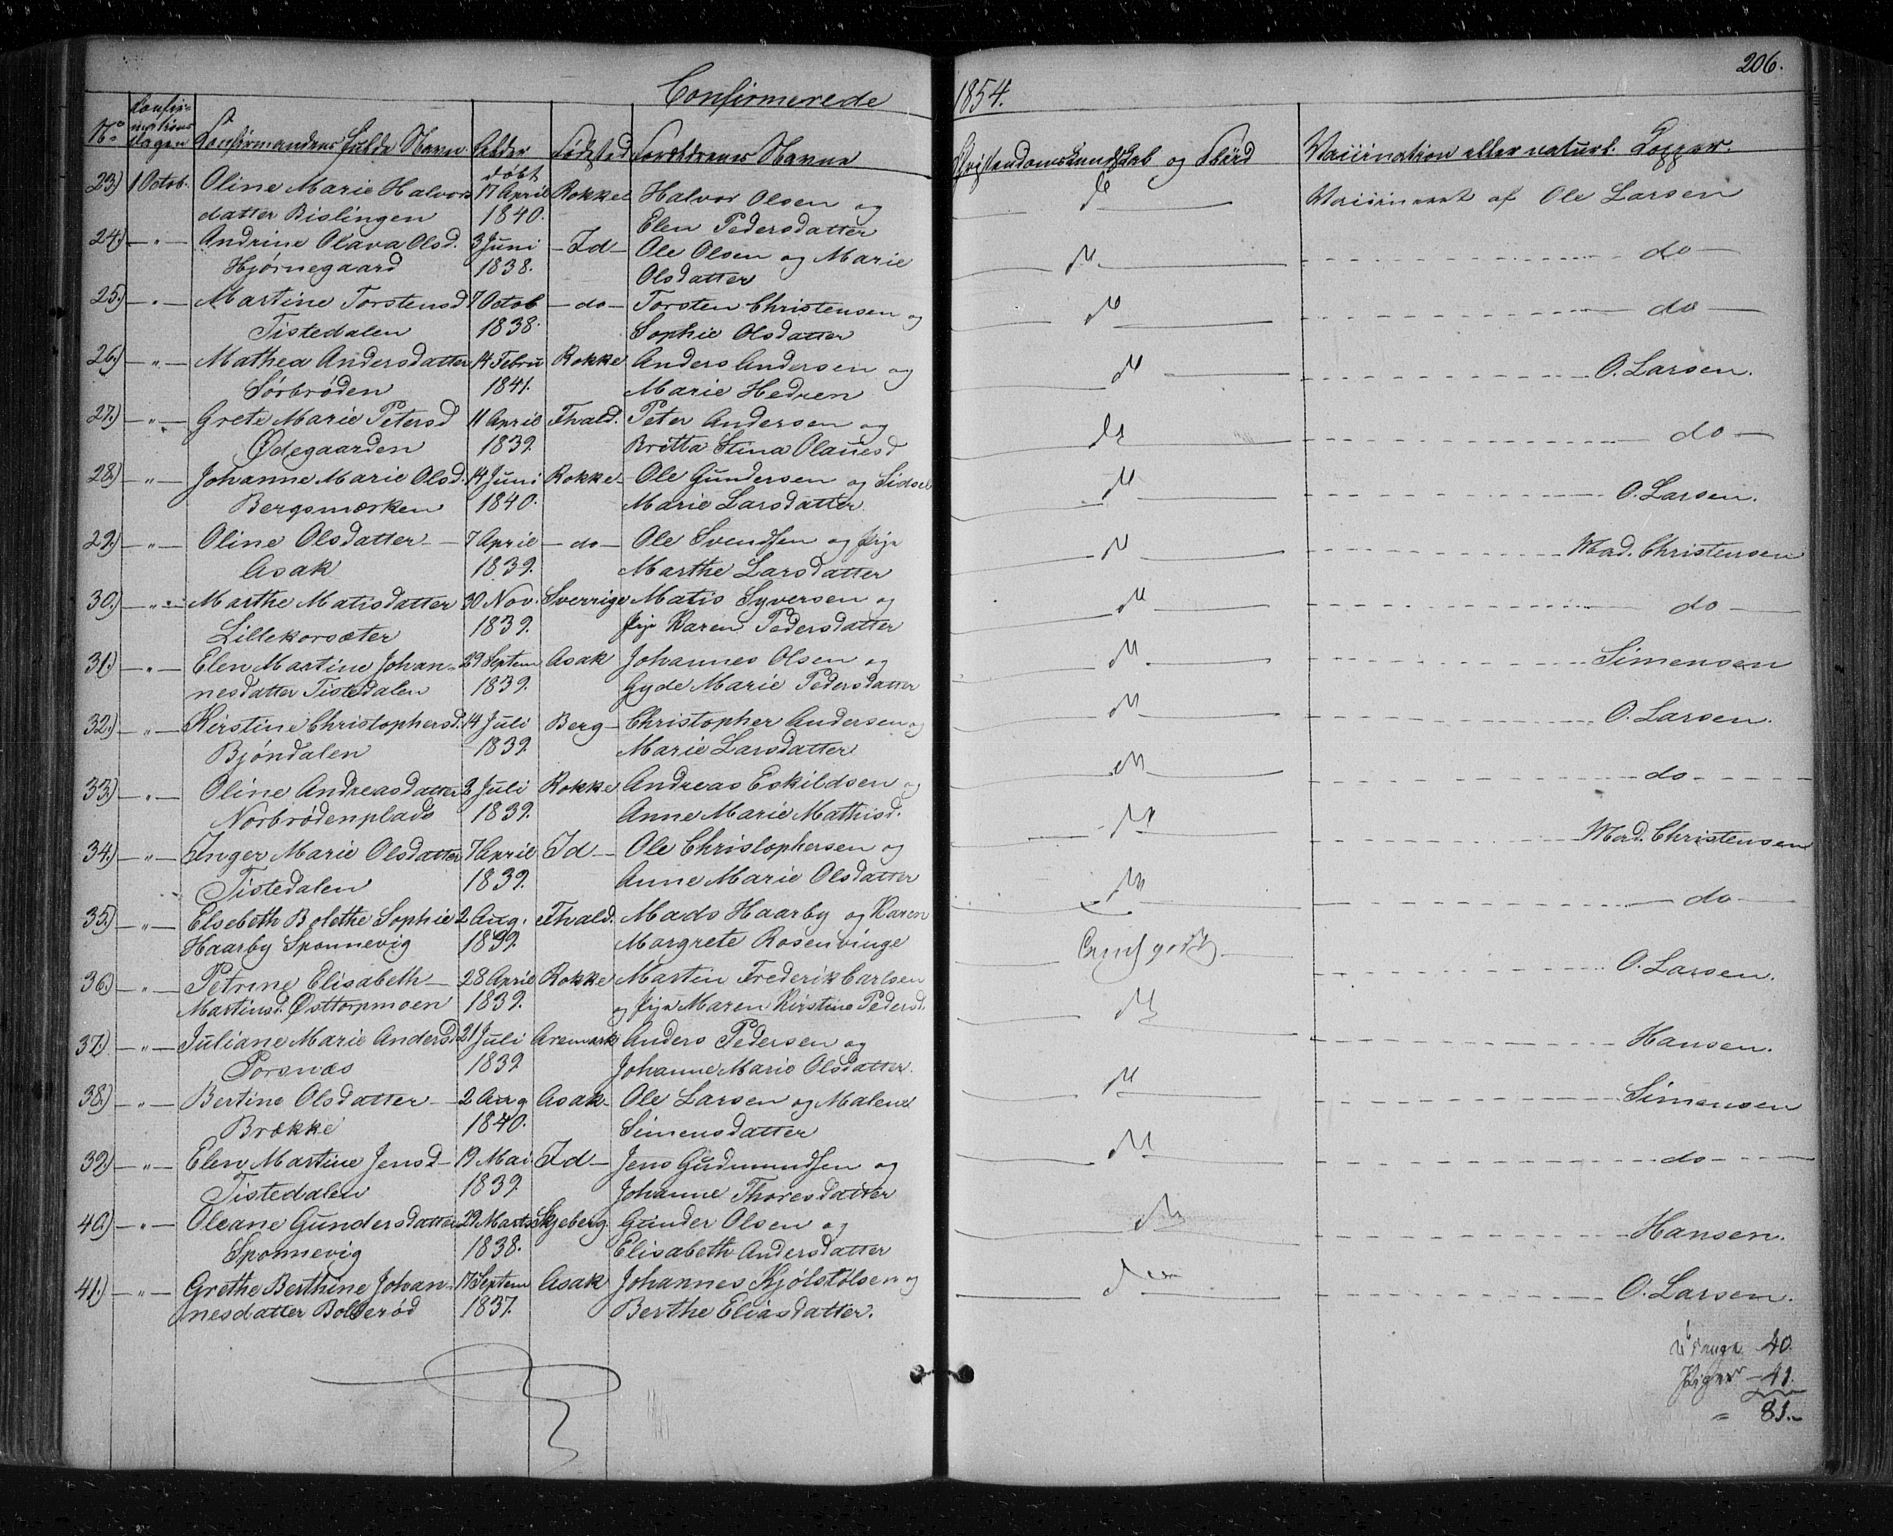 Confirmerede
1854.
206.
No Confirmations Dagen Confirmandens fulde Navn Alder Fødested Forældrenes Navne Christendomskundskab og Flid Vaccination eller naturl. Kopper.
døbt
23) 1 Octob. Oline Marie Halvors 17 April Rokke Halvor Olsen og Vaccineret af Ole Larsen
datter Bislingen 1840. Elen Pedersdatter
24) " Andrine Olava Olsd. 3 Juni Id Ole Olsen og Marie do
Hjørnegaard 1838. Olsdatter
25.) " Martine Torstensd 7 Octob do Torsten Christensen og do
Tistedalen 1838. Sophie Olsdatter
26.) " Mathea Andersdatter 14 Febru Rokke Anders Andersen og O. Larsen.
Sørbrøden 1841. Marie Hedren
27.) " Grete Marie Petersd 11 April Fhald. Peter Andersen og do
Ødegaarden 1839. Britta Stina Olauesd
28) " Johanne Marie Olsd. 14 Juni Rokke Ole Gundersen og Sidsel O. Larsen.
Bergsmarken 1840. Marie Larsdatter
29.) " Oline Olsdatter 7 April do Ole Svendsen og Pige Mad. Christensen
Asak 1839. Marthe Larsdatter
30.) " Marthe Matisdatter 30 Nov. Sverrige Matis Syversen og do
Lillekorsæter 1839. Pige Karen Pedersdatter
31.) " Elen Martine Johan- 29 Septem Asak Johannes Olsen og Simensen
nesdatter Tistedalen 1839. Gyde Marie Pedersdatter
32.) " Kirstine Christophersd. 14 Juli Berg Christopher Andersen og O. Larsen.
Bjøndalen 1839. Marie Larsdatter
33.) " Oline Andreasdatter 2 Juli Rokke Andreas Eskildsen og do
Norbrødenplads 1839. Anne Marie Mathisd.
34.) " Inger Marie Olsdatter 7 April Id Ole Christophersen og Mad. Christensen
Tistedalen 1839. Anne Marie Olsdatter
35.) " Elsebeth Bolethe Sophie 2 Aug. Fhald. Mads Haarby og Karen do
Haarby Sponnevig 1839. Margrete Rosenvinge godt
36.) " Petrine Elisabeth 28 April Rokke Martin Frederik Carlsen O. Larsen.
Martinsd. Østtorpmoen 1839. og Pige Maren Kirstine Pedersd.
37.) " Juliane Marie Andersd 21 Juli Aremark Anders Pedersen og Hansen.
Porsnæs 1839 Johanne Marie Olsdatter.
38.) " Bertine Olsdatter 2 Aug Asak Ole Larsen og Malene Simensen
Brække 1840. Simensdatter
39.) " Elen Martine Jensd 19 Mai Id Jens Gudmundsen og do
Tistedalen 1839 Johanne Thoresdatter
40.) " Oleane Gundersdatter 29 Marts Skjeberg Gunder Olsen og Hansen.
Sponnevig 1838. Elisabeth Andersdatter
41.) " Grethe Berthine Johan- 17 Septem Asak Johannes Kjølstølsen og O. Larsen.
nesdatter Bollerød 1837. Berthe Eliasdatter.
Drenge 40.
Piger 41.
" 81.